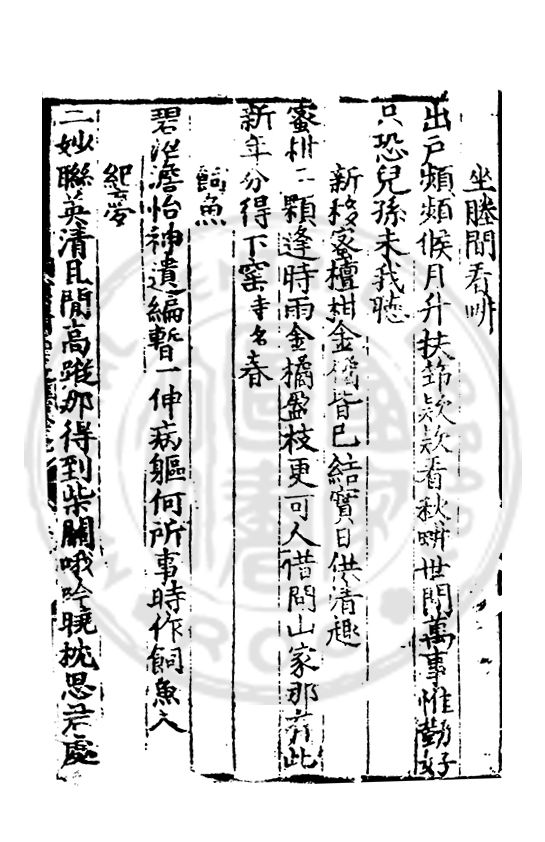 坐塍間看畊
出戶頻頻候月升扶筇欵欵看秋畊世間萬事惟勤好
只恐兒孫未我聴
新移蜜檀柑金橘皆已結實日供清趣
蜜柑二顆逢時雨金橘盈枝更可人借問山家那有此
新年分得下窯寺名春
飼魚
碧沼澹怡神遺編暫一伸病軀何所事時作飼魚人
紀夢
二妙聯英清且閒高蹤那得到柴關哦吟曉枕思君處